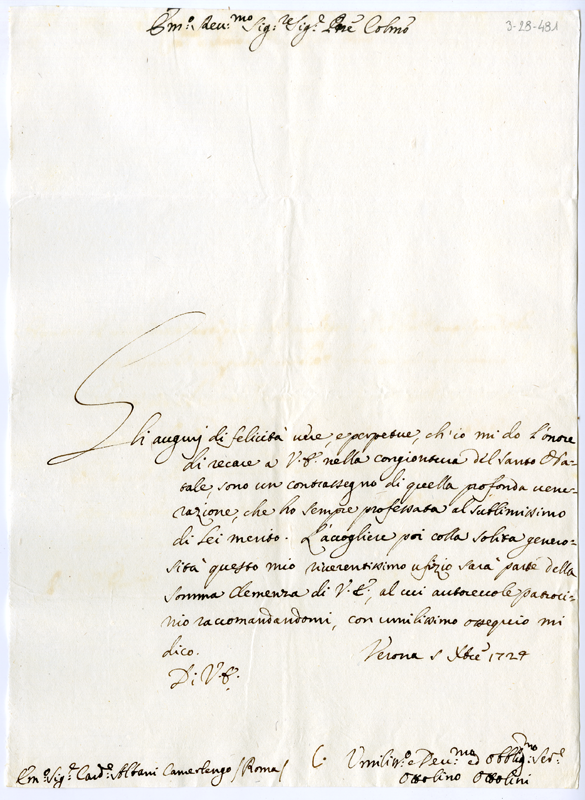 Em.º Reu.mo Sig.re Sig.r Pne Colmo
3-28-481
Gli augurj di felicità vere, e perpetue, ch'io mi do l'onore
di recare a V.E. nella congiontura del santo Na-
tale, sono un contrassegno di quella profonda vene-
razione, che ho sempre professata al sublimissimo
di Lei merito. L'accogliere poi colla solita genero-
sità questo mio riverentissimo ufizio sarà parte della
somma Clemenza di V.E., al cui autorevole patroci-
nio raccomandandomi, con umilissimo ossequio mi
dico.
Verona 5 Xbre 1724
Di V.E.
Em.º Sig.r Card.e Albani Camerlengo (Roma)
Umiliss.º e Deu.mo ed Obblig.mo Ser.e
Ottolino Ottolini